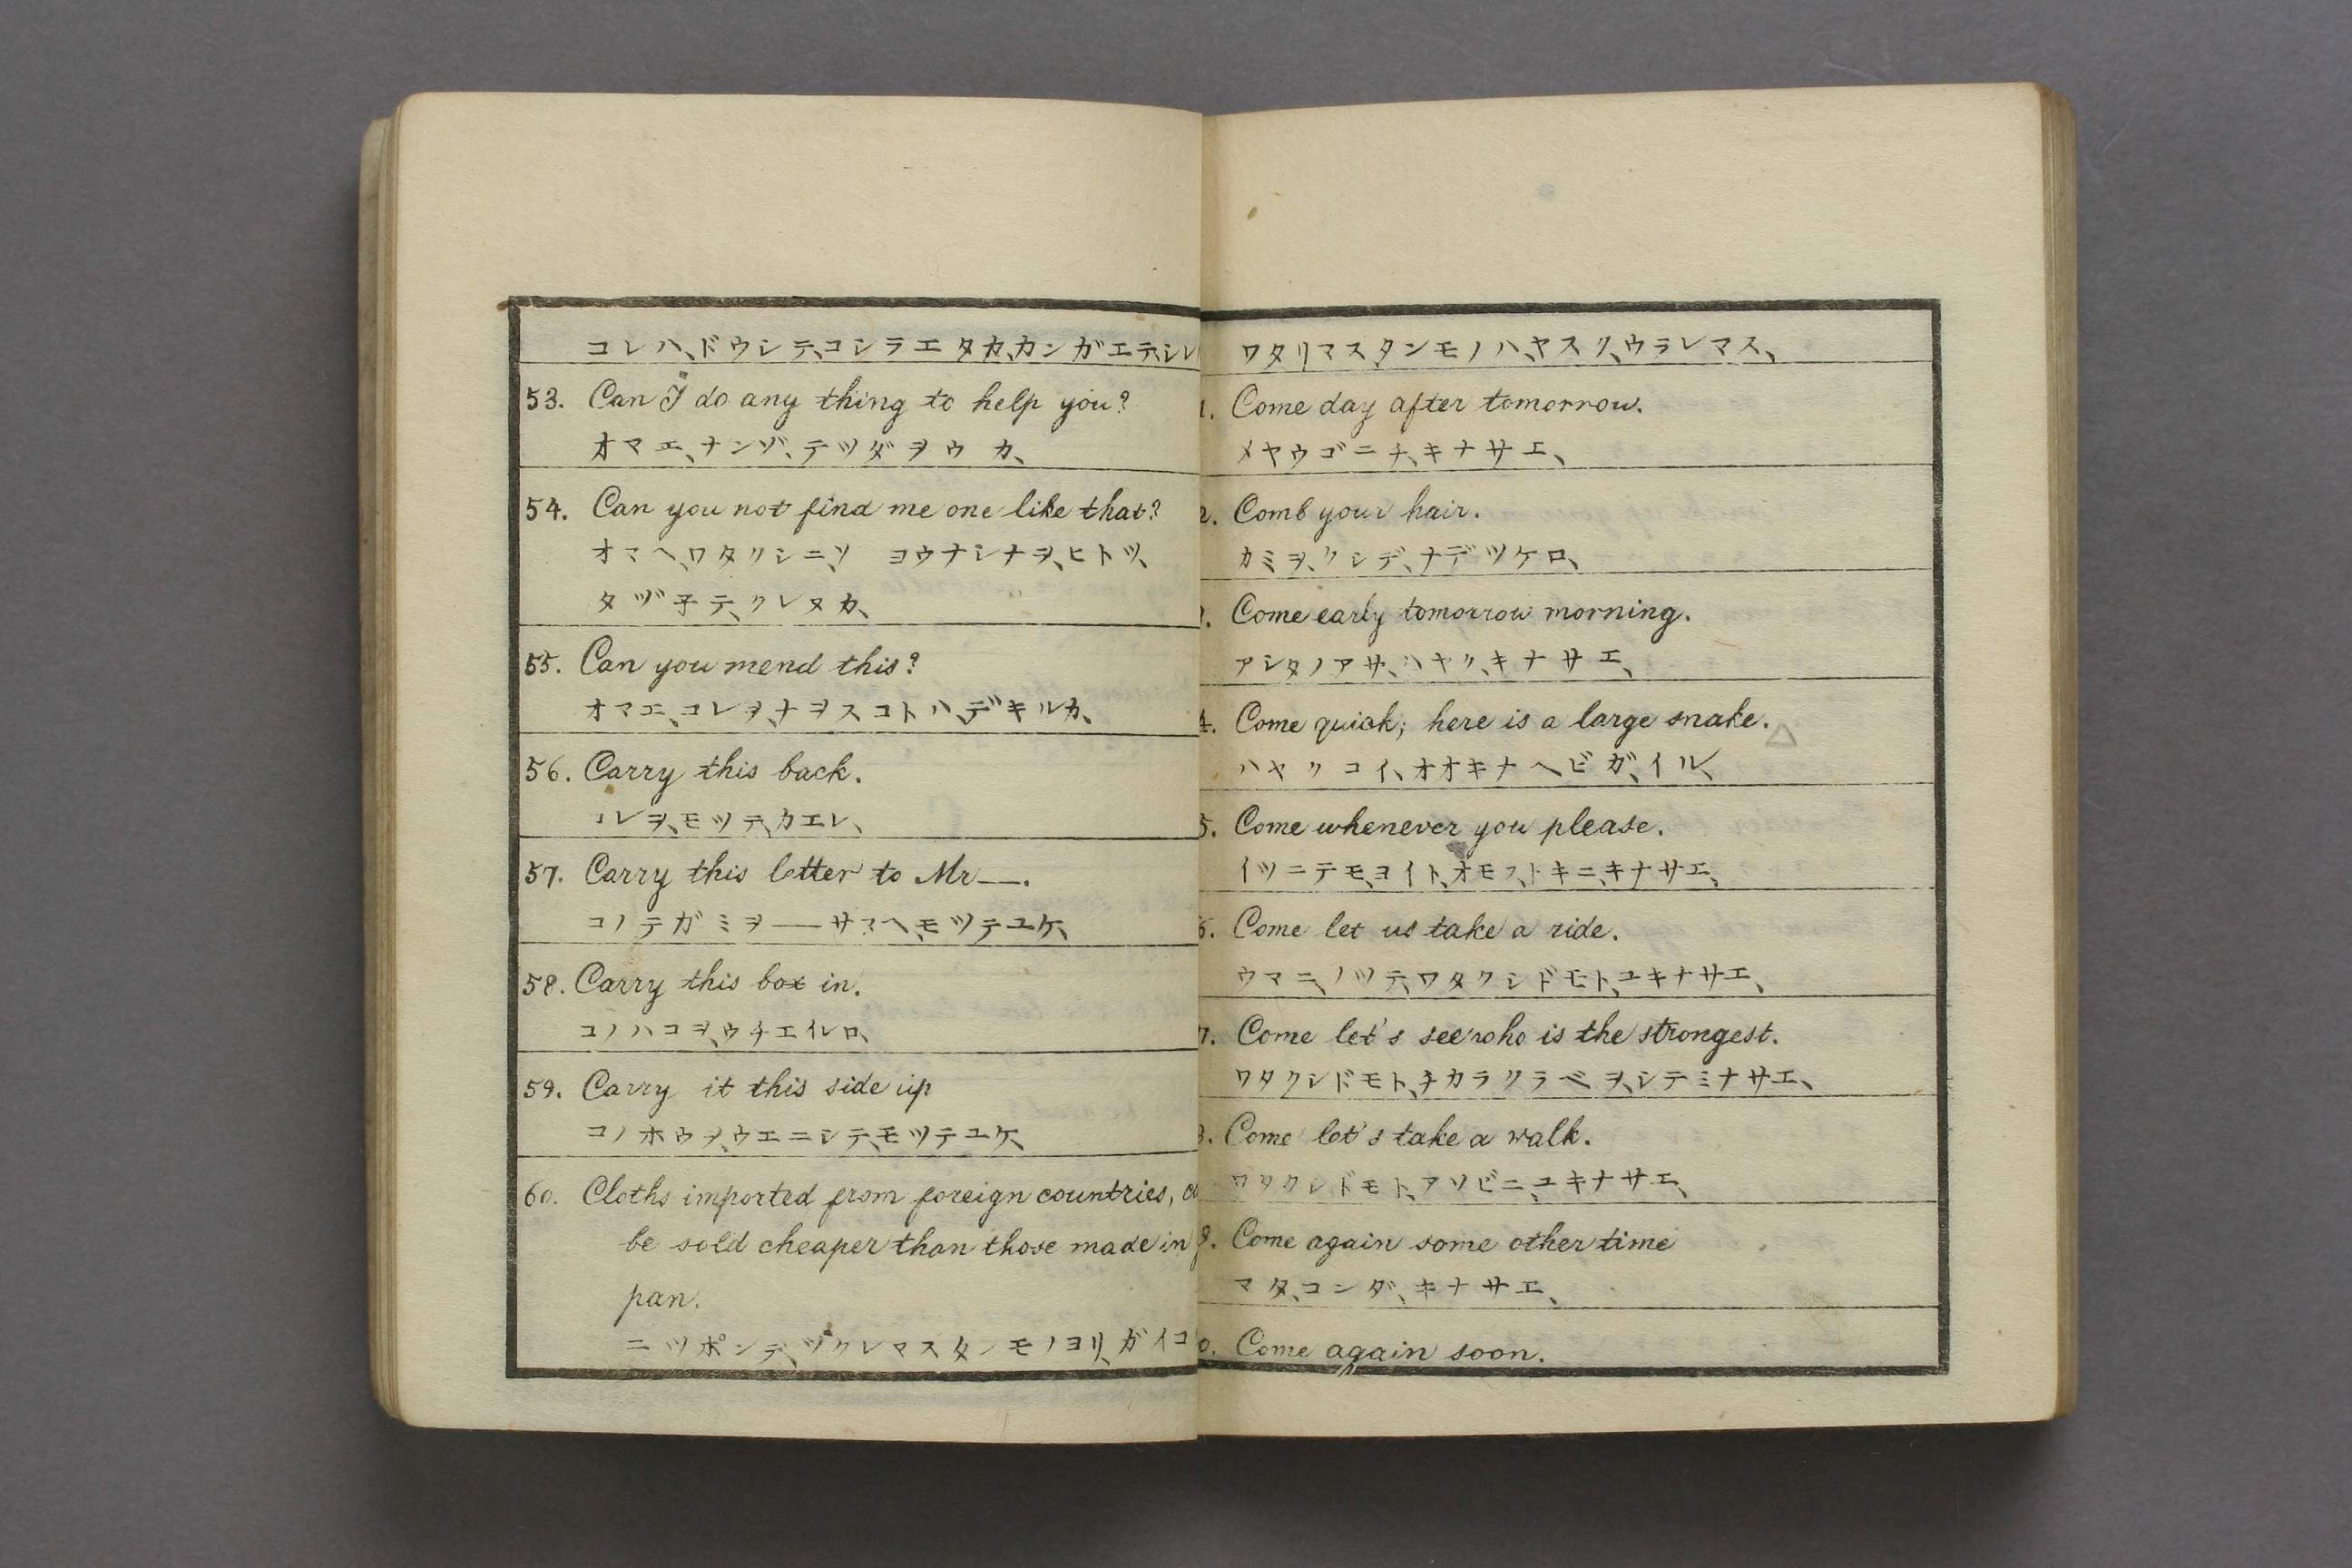 コレハ、ドウシテ、コシラエタカ、カンガエテ、シレ
53. Can I do any thing to help you?
オマエ、ナンゾ、テツダヲウカ、
54. Can you not find me one like that?
オマヘ、ワタクシニ、ソ ヨウナシナヲ、ヒトツ、
タヅ子テ、クレヌカ、
55. Can you mend this?
オマエ、コレヲ、ナヲスコトハ、デキルカ、
56. Carry this back.
コレヲ、モツテ、カエレ、
57. Carry this letter to Mr—.
コノテガミヲ——サマヘ、モツテユケ、
58. Carry this box in.
コノハコヲ、ウチエイレロ、
59. Carry it this side up
コノホウヲ、ウエニシテ、モツテユケ、
60. Cloths imported from foreign countries, c
be sold cheaper than those made in
pan.
ニツポンデ、ヅクレマスタンモノヨリ、ガイコ
ワタリマスタンモノハ、ヤスク、ウラレマス、
1. Come day after tomorrow.
メヤウゴニチ、キナサエ、
2. Comb your hair.
カミヲ、クシデ、ナデツケロ、
Come early tomorrow morning.
アシタノアサ、ハヤク、キナサエ、
4. Come quick; here is a large snake.
ハヤクコイ、オオキナヘビガ、イル、
5. Come whenever you please.
イツニテモ、ヨイト、オモフ、トキニ、キナサエ、
6. Come let us take a ride.
ウマニ、ノツテ、ワタクシドモト、ユキナサエ、
7. Come let's see who is the strongest.
ワタクシドモト、チカラクラベヲ、シテミナサエ、
8. Come let's take a walk.
ワタクシドモト、アソビニ、ユキナサエ、
9. Come again some other time
マタ、コンダ、キナサエ、
0. Come again soon.